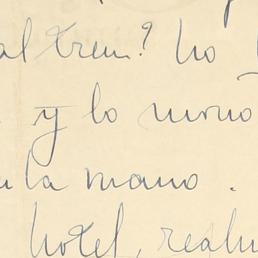 al tren? No
y lo mono
la mano.
hotel, realm